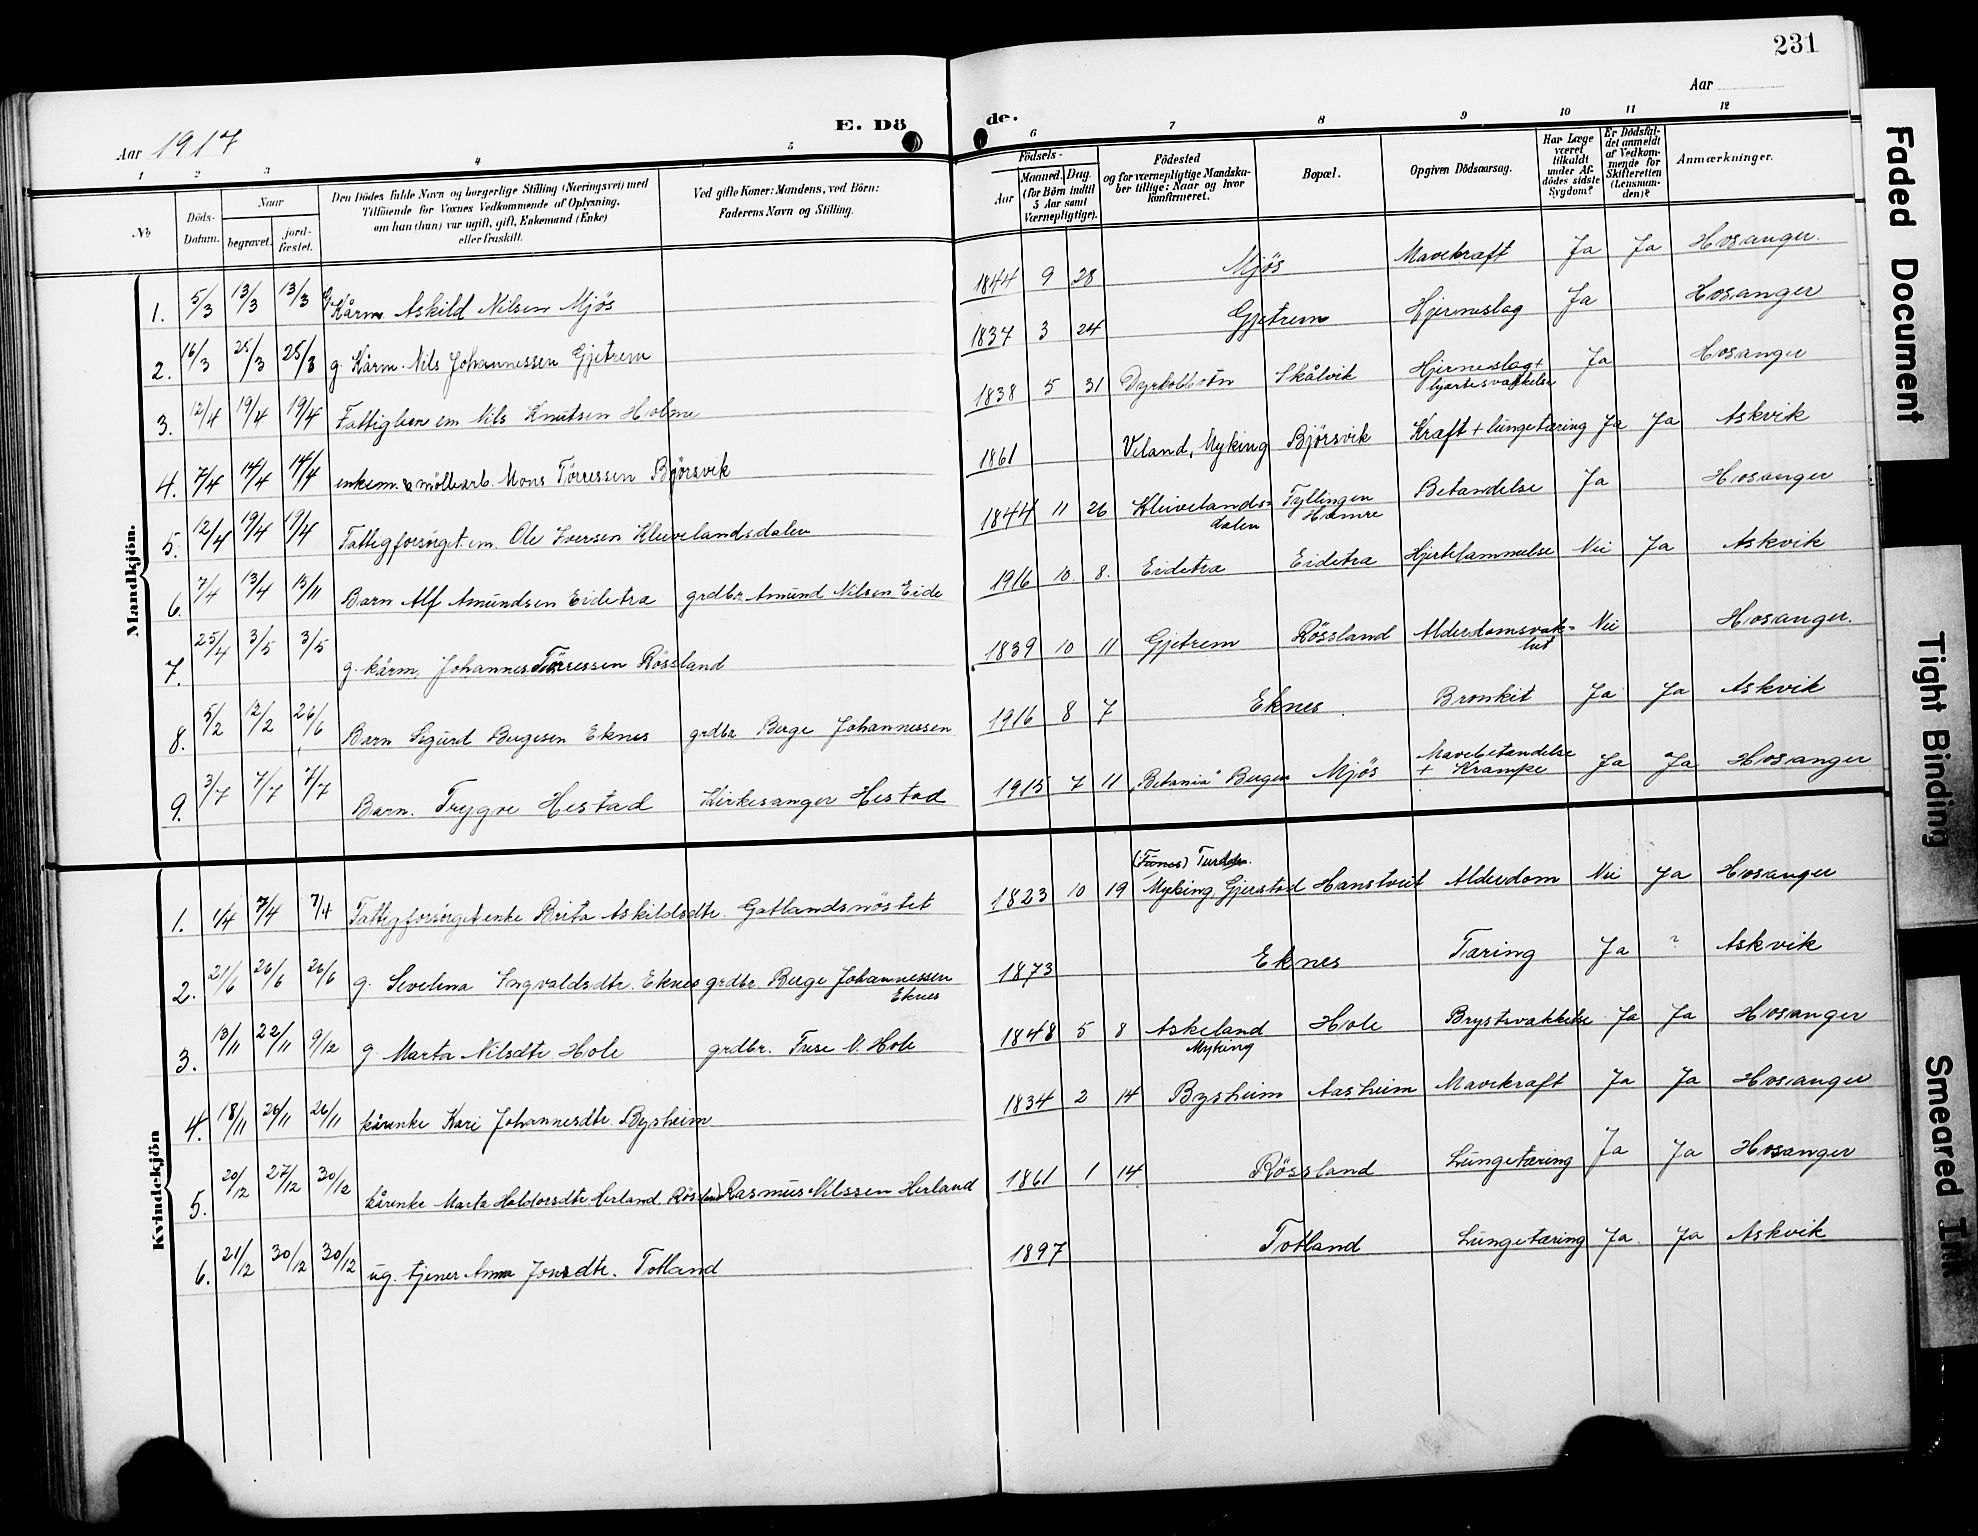 231
Aar
Aar 1917
E. Dö de.
1 2 3 4 5 6 7 8 9 10 11 12
No
Döds-Datum.
Naar
begravet.
jord-fæstet.
Den Dödes fulde Navn og borgerlige Stilling (Næringsvei) med
Tilföiende for Voxnes Vedkommende af Oplysning,
om han (hun) var ugift, gift, Enkemand (Enke)
eller fraskilt.
Ved gifte Koner: Mandens, ved Börn:
Faderens Navn og Stilling.
Födsels-
Aar
Maaned. Dag.
(for Börn indtil
5 Aar samt
Værnepligtige).
Födested
og for værnepligtige Mandska-
ber tillige: Naar og hvor
konfirmeret.
Bopæl.
Opgiven Dödsaarsag.
Har Læge
været
tilkaldt
under Af-
dödes sidste
Sygdom?
Er Dödsfal-
det anmeldt
af Vedkom-
mende for
Skifteretten
(Lensman-
den)?
Anmærkninger.
Mandkjön.
1. 5/3 13/3 13/3 g. Kårm. Askild Nilsen Mjös 1844 9 28 Mjös Mavekræft Ja Ja Hosanger.
2. 16/3 25/3 25/3 g. Kårm. Nils Johannessen Gjetrem 1837 3 24 Gjetrem Hjerneslag Ja Hosanger
3. 12/4 19/4 19/4 Fattiglem em Nils Knutsen Holme 1838 5 31 Dyrkolbotn Skålvik Hjerneslag + hjertesvakkelse Ja Hosanger
4. 7/4 14/4 14/4 enkem. & möllearb. Mons Törressen Björsvik 1861 Veland, Myking Björsvik Kræft + lungetæring Ja Ja Askvik
5. 12/4 19/4 19/4 Fattigforsörget em. Ole Iversen Kleivelandsdalen 1844 11 26 Kleivelands-dalen Tyllingen Hamre Betændelse Ja Hosanger
6. 7/4 13/4 13/11 Barn Alf Amundsen Eidetræ grdbr. Amund Nilsen Eide 1916 10. 8. Eidetræ Eidetræ Hjertelammelse Nei Ja Askvik
7. 25/4 3/5 3/5 g. kårm. Johannes Törressen Rössland 1839 10 11 Gjetrem Rössland Alderdomsvak-het Nei Hosanger.
8. 5/2 12/2 26/6 Barn Sigurd Bergesen Eknes grdbr Berge Johannessen 1916 8 7 Eknes Bronkit Ja Ja Askvik
9. 3/7 7/7 7/7 Barn. Trygve Hestad Kirkesanger Hestad 1915 7 11 "Betania" Bergen Mjös Mavebetændelse + Krampe Ja Ja Hosanger
Kvindekjön
1. 1/4 7/4 7/4 Fattigforsörget enke Brita Askildsdtr. Gotlandsnöstet 1823 10 19 Myking, Gjerstad Hanstveit Alderdom Nei Ja Hosanger
2. 21/6 26/6 26/6 g. Sevelina Ingvaldsdtr. Eknes grdbr. Berge Johannessen Eknes 1873 Eknes Tæring Ja ? Askvik
3. 13/11 22/11 9/12 g. Marta Nilsdtr Hole grdbr. Ture N. Hole 1848 5 8 Askeland Myking Hole Brystsvakkelse Ja Ja Hosanger
4. 18/11 26/11 26/11 kårenke Kari Johannesdtr. Bysheim 1834 2 14 Bysheim Aasheim Mavekræft Ja Ja Hosanger
5. 20/12 27/12 30/12 kårenke Marta Haldorsdtr Herland, Rössland Rasmus Nilssen Herland 1861 1 14 Rössland Lungetæring Ja Ja Hosanger
6. 21/12 30/12 30/12 ug. tjener Anna Jonsdtr. Totland 1897 Totland Lungetæring Ja. Ja Askvik
Faded Document
Tight Binding
Smeared Ink